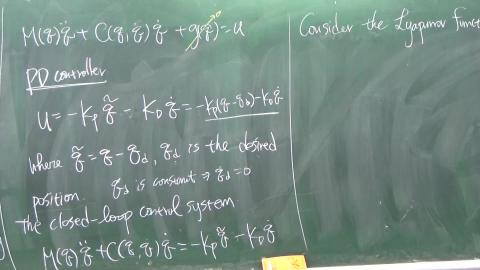 M(q)q̈ + C(q, q̇)q̇ + g(q) = u
PD controller
u = -K_P q̃ - K_D q̇ = -K_P(q-q_d)-K_D q̇
where q̃ = q - q_d, q_d is the desired
position. q_d is constant ⇒ q̇_d = 0
the closed-loop control system
M(q)q̈ + C(q, q̇)q̇ = -K_P q̃ - K_D q̇
Consider the Lyapunov funct